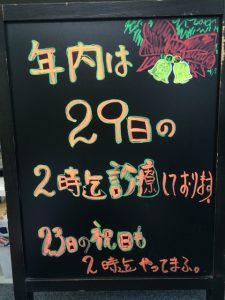 年内は
29日の
2時迄診療しております
23日の祝日も
2時迄やってまふ。